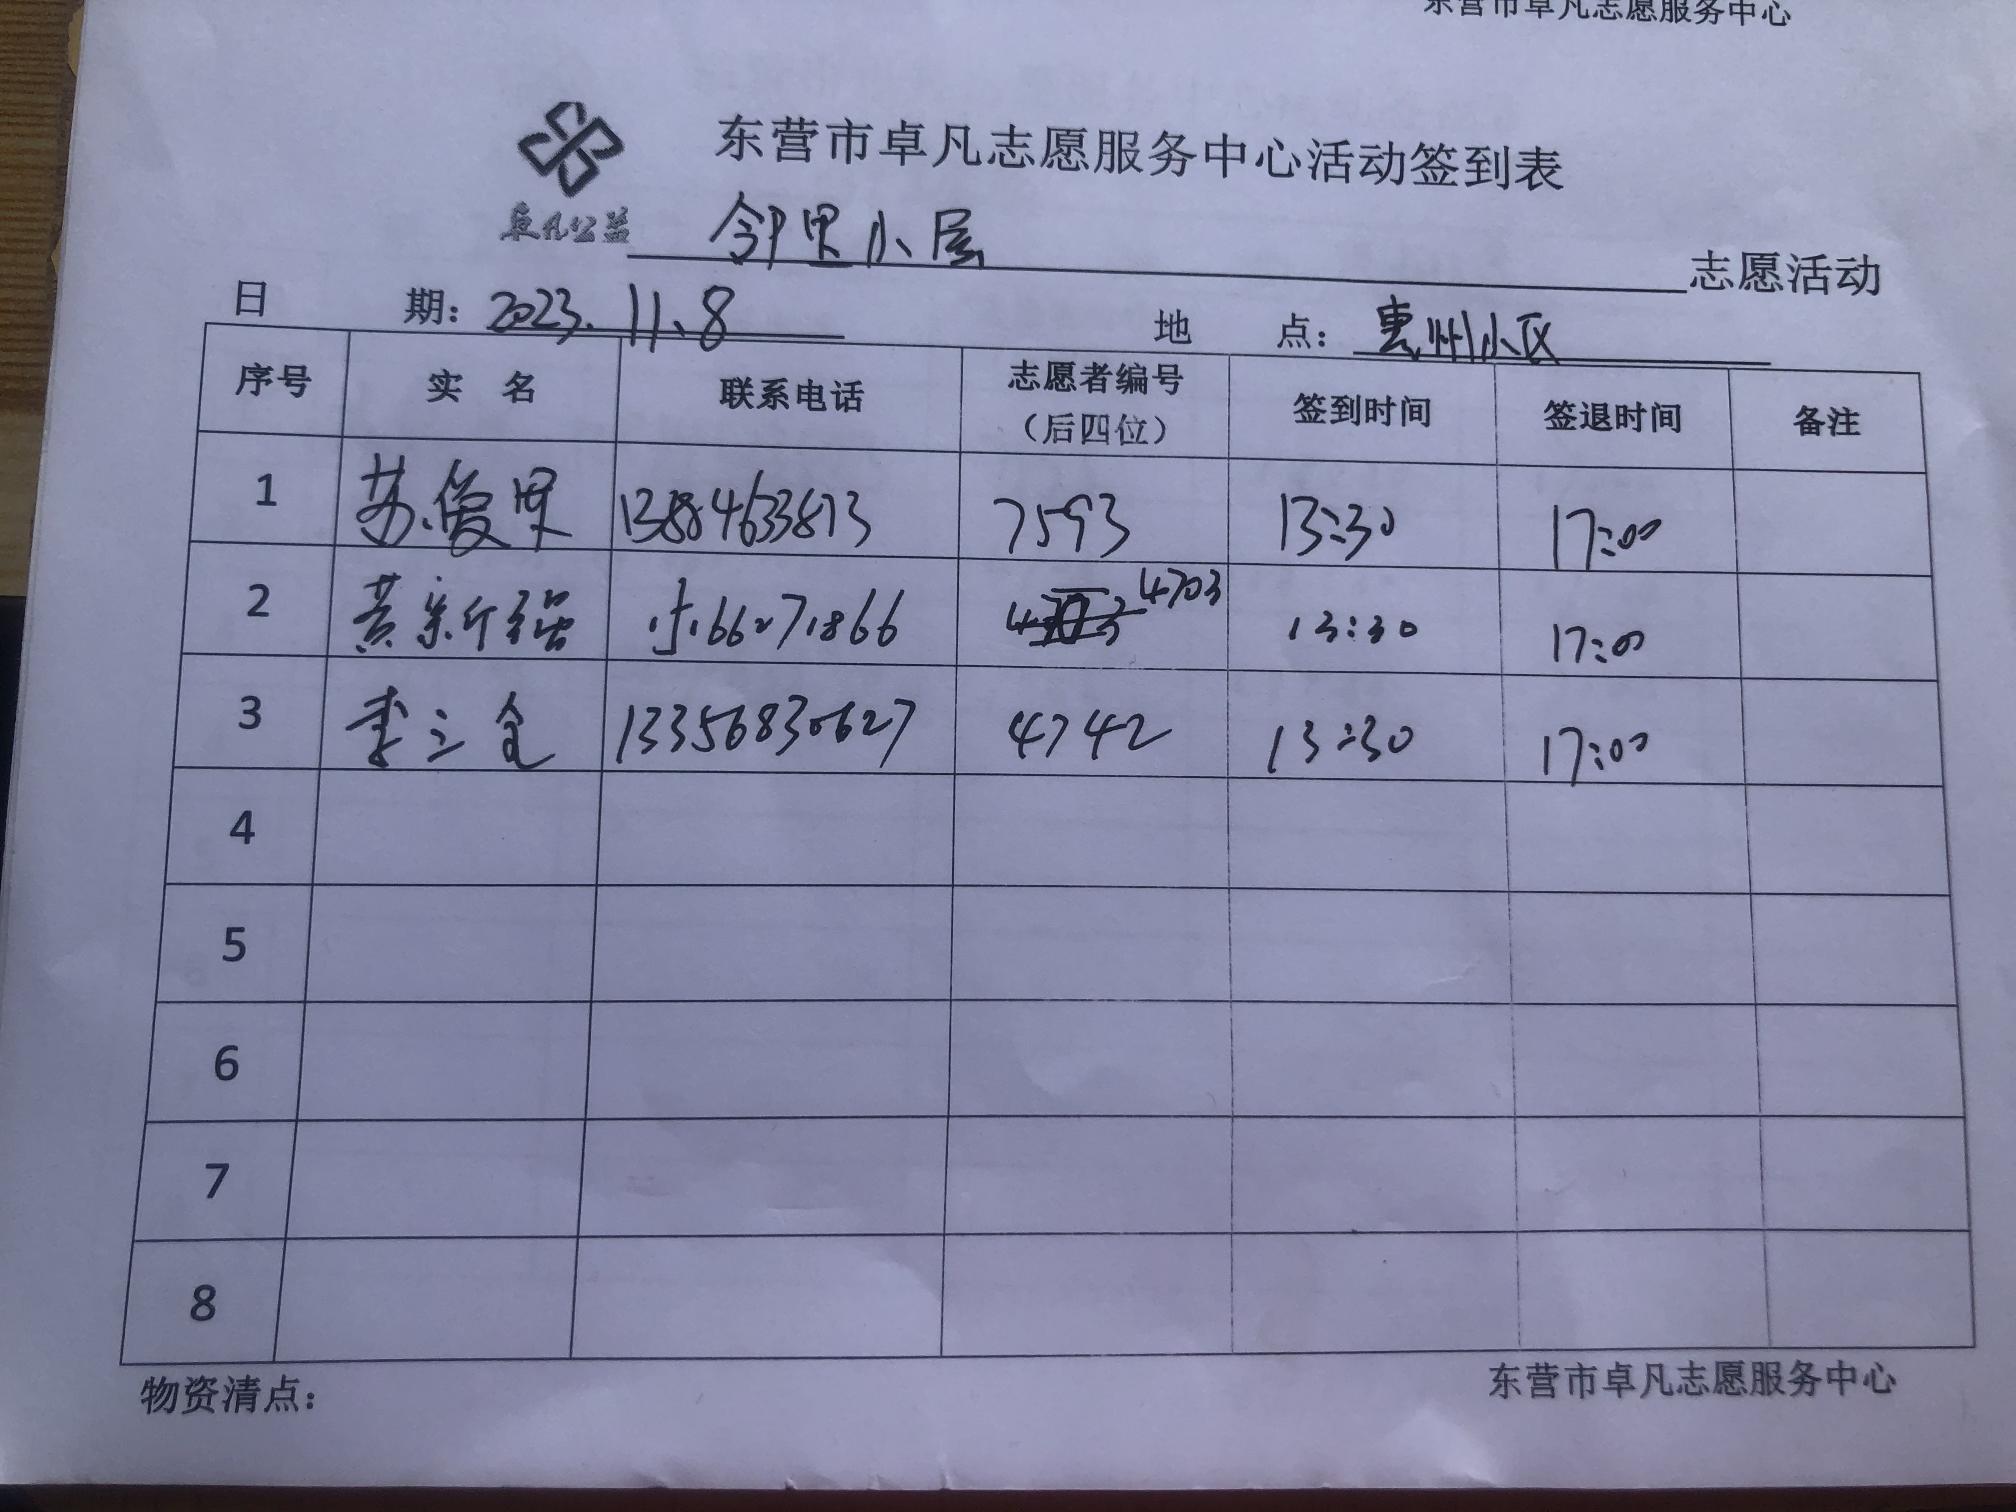 东营市卓凡志愿服务中心
东营市卓凡志愿服务中心活动签到表
卓凡公益
邻里小屋 志愿活动
日 期：2023.11.8 地 点：惠州小区
序号 实 名 联系电话 志愿者编号（后四位） 签到时间 签退时间 备注
1 苏俊贤 7593 13:30 17:00
2 黄新强 4703 13:30 17:00
3 李三金 13356830627 4742 13:30 17:00
4
5
6
7
8
物资清点：
东营市卓凡志愿服务中心